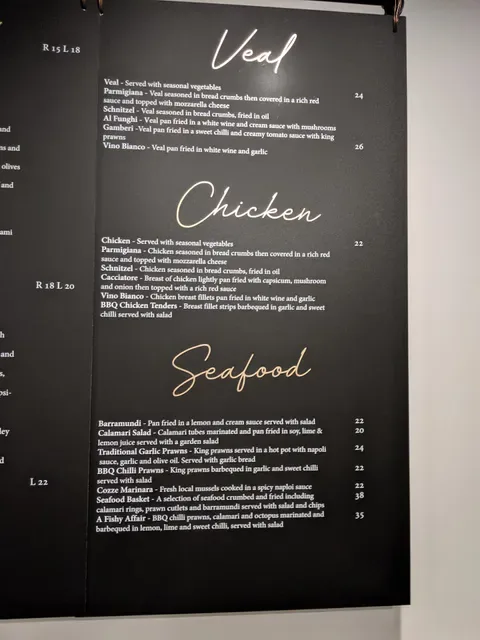 R 15 L 18
and
ns and
olives
and
ami
R 18 L 20
h
and
s,
psi-
ley
d
L 22
Veal
Veal - Served with seasonal vegetables
Parmigiana - Veal seasoned in bread crumbs then covered in a rich red 24
sauce and topped with mozzarella cheese
Schnitzel - Veal seasoned in bread crumbs, fried in oil
Al Funghi - Veal pan fried in a white wine and cream sauce with mushrooms
Gamberi -Veal pan fried in a sweet chilli and creamy tomato sauce with king
prawns
Vino Bianco - Veal pan fried in white wine and garlic 26
Chicken
Chicken - Served with seasonal vegetables 22
Parmigiana - Chicken seasoned in bread crumbs then covered in a rich red
sauce and topped with mozzarella cheese
Schnitzel - Chicken seasoned in bread crumbs, fried in oil
Cacciatore - Breast of chicken lightly pan fried with capsicum, mushroom
and onion then topped with a rich red sauce
Vino Bianco - Chicken breast fillets pan fried in white wine and garlic
BBQ Chicken Tenders - Breast fillet strips barbequed in garlic and sweet
chilli served with salad
Seafood
Barramundi - Pan fried in a lemon and cream sauce served with salad 22
Calamari Salad - Calamari tubes marinated and pan fried in soy, lime & 20
lemon juice served with a garden salad
Traditional Garlic Prawns - King prawns served in a hot pot with napoli 24
sauce, garlic and olive oil. Served with garlic bread
BBQ Chilli Prawns - King prawns barbequed in garlic and sweet chilli 22
served with salad
Cozze Marinara - Fresh local mussels cooked in a spicy naploi sauce 22
Seafood Basket - A selection of seafood crumbed and fried including 38
calamari rings, prawn cutlets and barramundi served with salad and chips
A Fishy Affair - BBQ chilli prawns, calamari and octopus marinated and 35
barbequed in lemon, lime and sweet chilli, served with salad